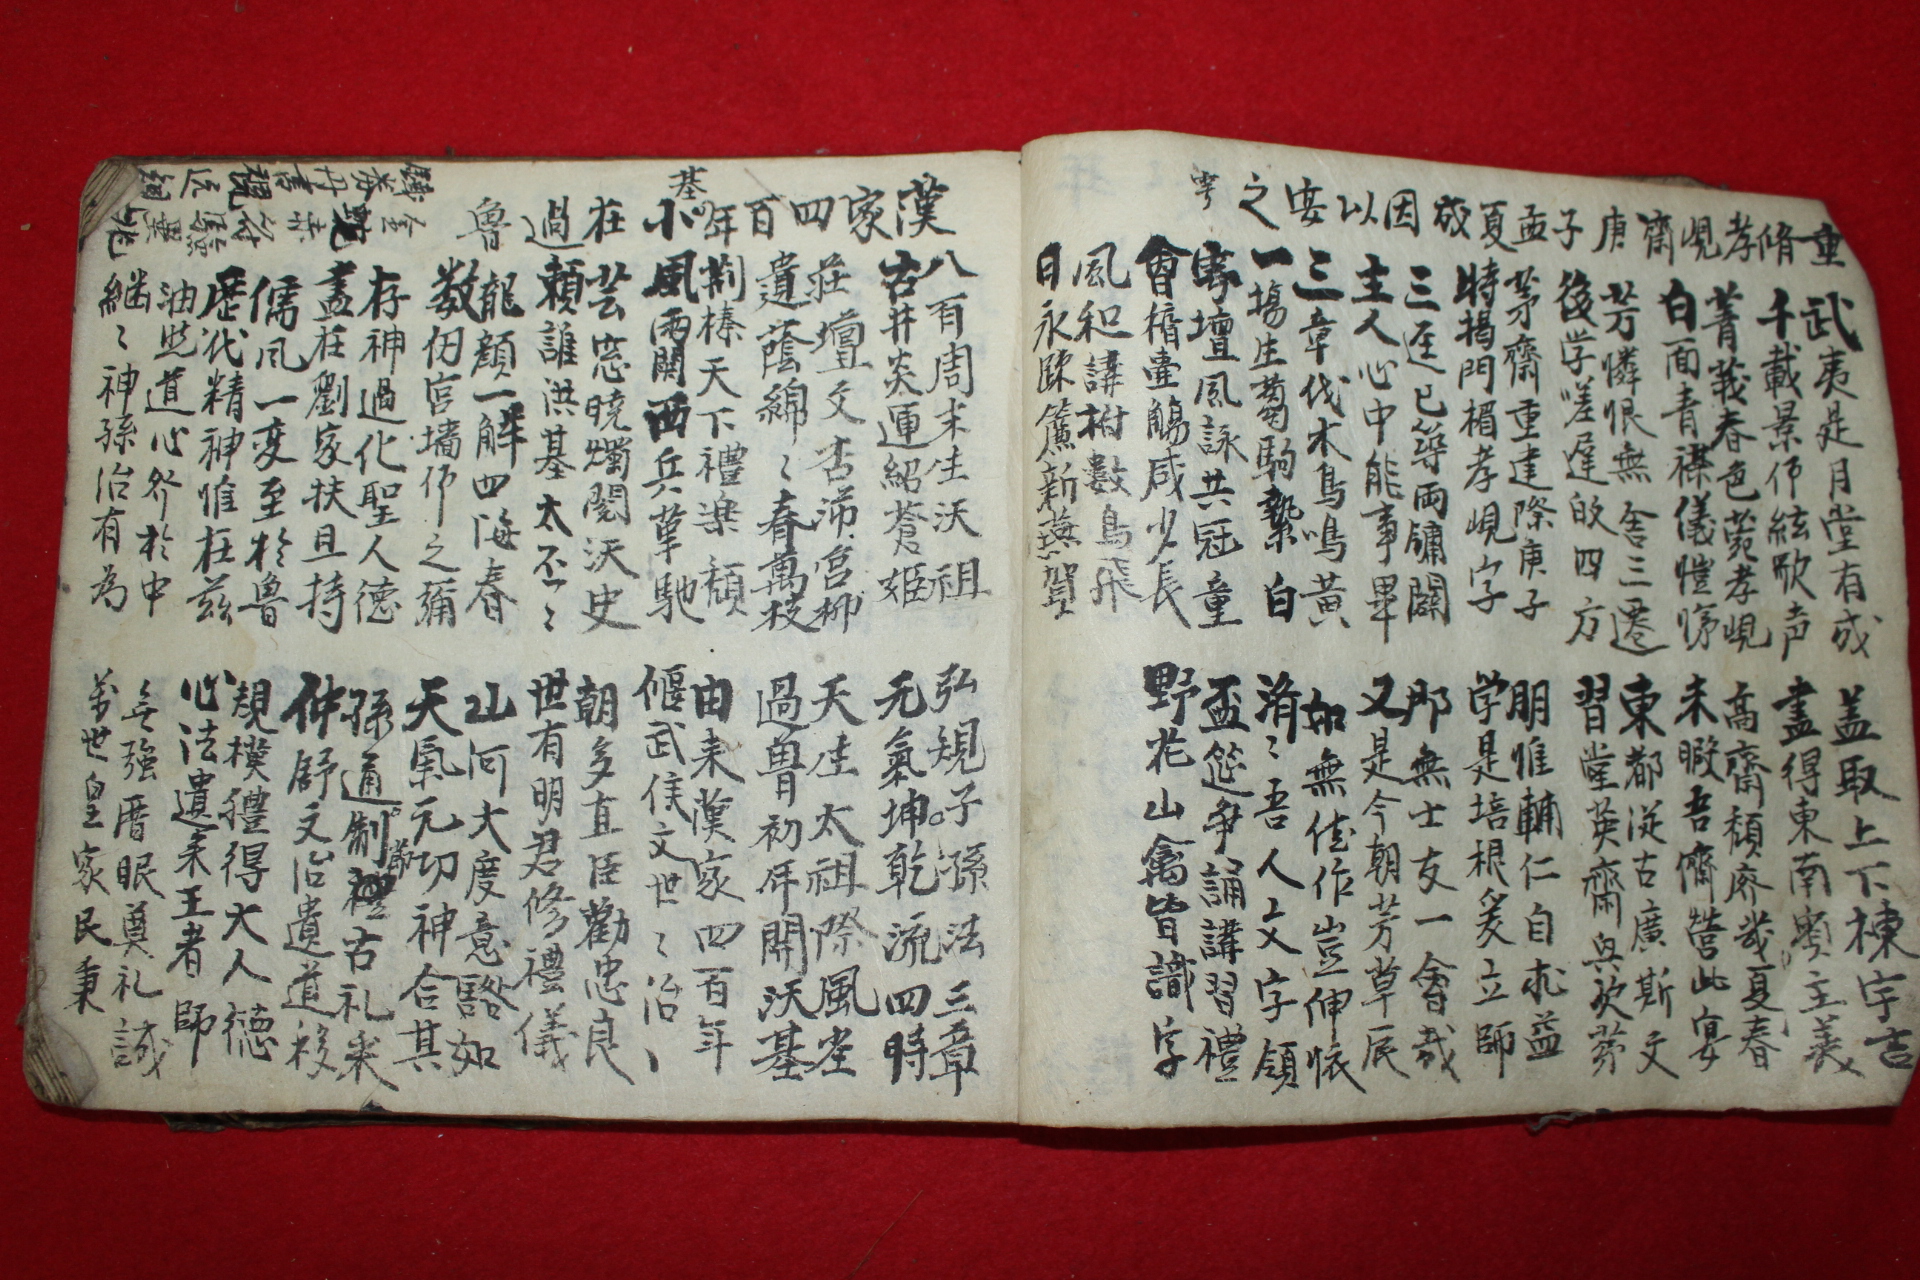 重脩孝峴齋庚子孟夏成因以安之
武夷是月堂有成
千載景仰絃歌声
菁莪春色菀孝峴
白面青襟儀愷悌
芳憐恨無舍三遷
後学嗟遅的四方
茅齋重建際庚子
特揭門楣孝峴字
三匝已築両鏞闢
主人心中能事畢
三章伐木鳥鳴黄
一場生蒭駒縶白
雩壇風詠共冠童
會稽壷觴咸少長
風和講樹數鳥飛
日永疎簾新燕賀
盖取上下棟宇吉
盡得東南賓主義
高齋頼庥幾夏春
未暇吾儕營此宴
東都従古廣斯文
習堂英齋與
朋惟輔仁自求益
学是培根爰立師
那無士友一會哉
又是今朝芳草辰
如無佳作豈伸懐
濟〻吾人文字領
盃筵爭誦講習禮
野花山禽皆識字
漢家四百年基小在過魯
八百周末生沃祖
古井炎運紹蒼姫
荘壇文杏沛宮柳
遺蔭綿〻春萬枝
荊榛天下禮楽頽
風雨関西兵革馳
芸窓暁燭閲沃史
頼誰洪基太丕〻
龍顔一解四海春
数仞宮墻仰之彌
存神過化聖人徳
盡在劉家扶且持
儒風一変至於魯
歴代精神惟在茲
油然道心於中
継〻神孫治有為
弘規子孫法三章
元氣坤乾流四時
天生太祖際風雲
過魯初年開沃基
由来漢家四百年
偃武修文世〻治
朝多直臣勸忠良
世有明君修禮儀
山河大度意豁如
天氣元功神合其
孫通制禮古礼来
仲舒文治遺道移
規模禮得大人徳
心法遺来王者師
無彊厝眠奠礼誠
万世皇家民秉